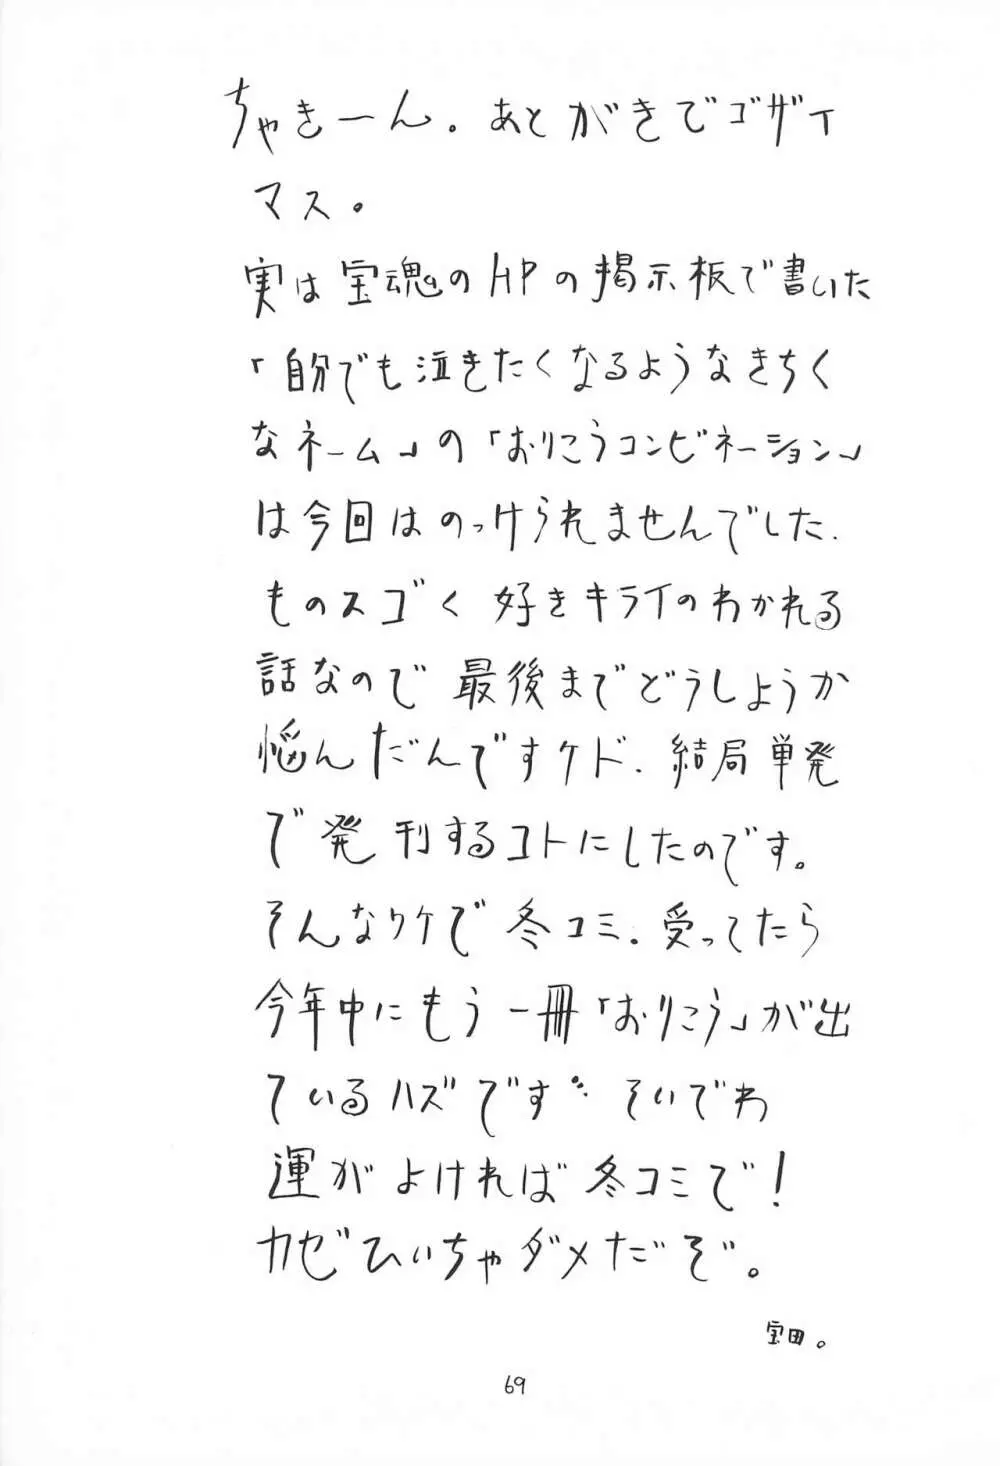 ちゃきーん。あとがきでゴザイ
マス。
実は宝魂のHPの掲示板で書いた
「自分でも泣きたくなるようなきちく
なネーム」の「おりこうコンビネーション」
は今回はのっけられませんでした、
ものスゴく好きキライのわかれる
話なので最後までどうしようか
悩んだんですケド、結局単発
で発刊するコトにしたのです。
そんなワケで冬コミ、受ってたら
今年中にもう一冊「おりこう」が出
ているハズですそいでわ
運がよければ冬コミで!
カゼひいちゃダメだぞ。
宝田。
69